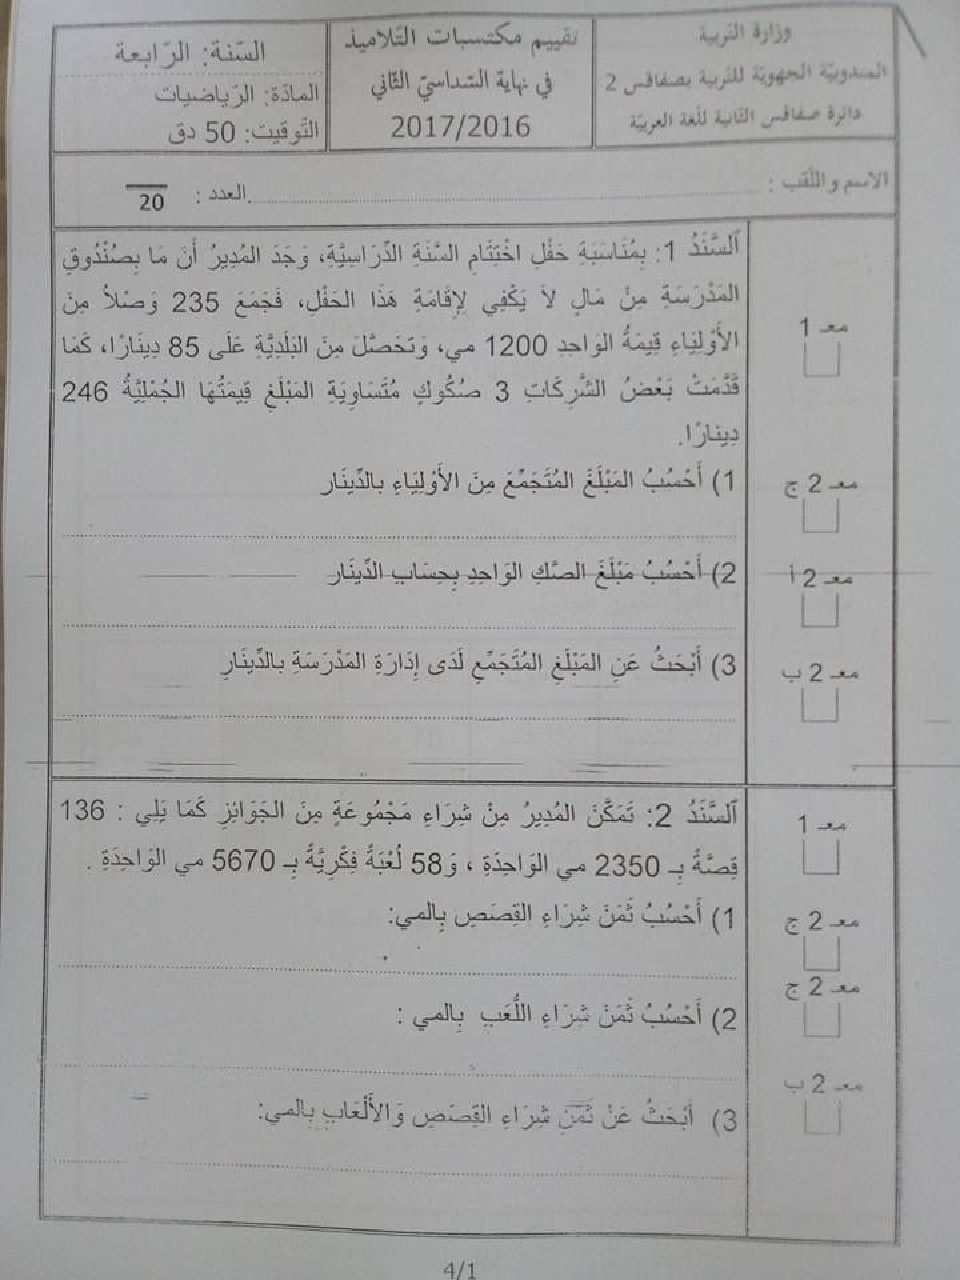 وزارة التربية
المندوبيّة الجهويّة للتربية بصفاقس 2
دائرة صفاقس الثانية للّغة العربيّة
تقييم مكتسبات التّلاميذ
في نهاية السّداسيّ الثّاني
2017/2016
السّنة: الرّابعة
المادّة: الرّياضيات
التّوقيت: 50 دق
الاسم واللّقب : ............ العدد : 20
اَلسَّنَدُ 1: بِمُنَاسَبَةِ حَفْلِ اخْتِتَامِ السَّنَةِ الدِّرَاسِيَّةِ، وَجَدَ المُدِيرُ أَنَ مَا بِصُنْدُوقِ
المَدْرَسَةِ مِنْ مَالٍ لاَ يَكْفِي لِإِقَامَةِ هَذَا الحَفْلِ، فَجَمَعَ 235 وَصْلاً مِنَ
الأَوْلِيَاءِ قِيمَةُ الوَاحِدِ 1200 مي، وَتَحَصَّلَ مِنَ البَلَدِيَّةِ عَلَى 85 دِينَارًا، كَمَا
قَدَّمَتْ بَعْضُ الشَّرِكَاتِ 3 صُكُوكٍ مُتَسَاوِيَةِ المَبْلَغِ قِيمَتُهَا الجُمْلِيَّةُ 246
دِينَارًا.
1) أَحْسُبُ المَبْلَغَ المُتَجَمِّعَ مِنَ الأَوْلِيَاءِ بالدِّينَار
2) أَحْسُبُ مَبْلَغَ الصَّكِ الوَاحِدِ بِحِسَابِ الدِّينَار
3) أَبْحَثُ عَنِ المَبْلَغِ المُتَجَمِّعِ لَدَى إِدَارَةِ المَدْرَسَةِ بالدِّينَارِ
معـ 1
معـ 2 ج
معـ 2 أ
معـ 2 ب
اَلسَّنَدُ 2: تَمَكَّنَ المُدِيرُ مِنْ شِرَاءِ مَجْمُوعَةٍ مِنَ الجَوَائِزِ كَمَا يَلِي : 136
قِصَّةً بِـ 2350 مي الوَاحِدَةِ ، وَ58 لُعْبَةً فِكْرِيَّةً بِـ 5670 مي الوَاحِدَةِ .
1) أَحْسُبُ ثَمَنَ شِرَاءِ القِصَصِ بِالمي:
2) أَحْسُبُ ثَمَنَ شِرَاءِ اللُّعَبِ بِالمي :
3) أَبْحَثُ عَنْ ثَمَنِ شِرَاءِ القِصَصِ وَالأَلْعَابِ بالمي:
معـ 1
معـ 2 ج
معـ 2 ج
معـ 2 ب
4/1